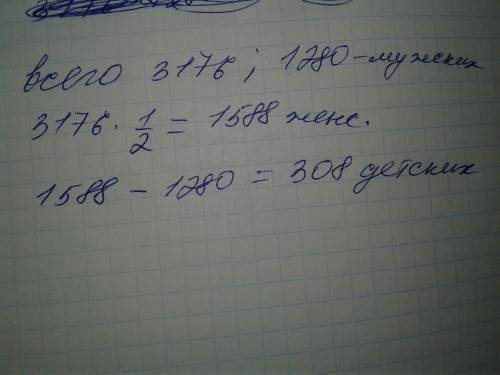 всего 3176; 1280-мужских
3176 · 1/2 = 1588 женс.
1588 - 1280 = 308 детских